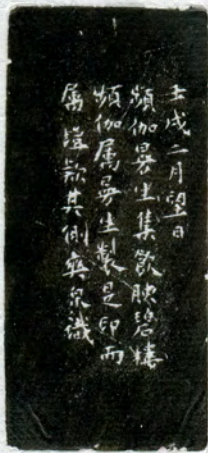 壬戌二月望日
頻伽曼生集飲腴碧樓
頻伽属曼生製是印而
属塏款其側爽泉識